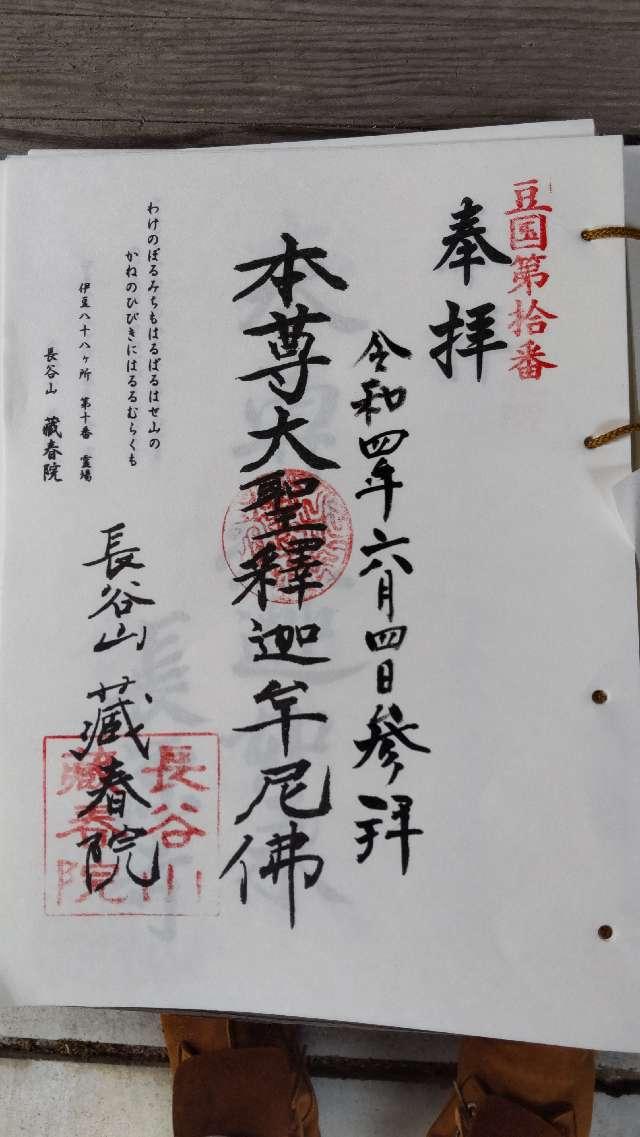 豆国第拾番
奉拝
令和四年六月四日参拝
本尊大聖釋迦牟尼佛
わけのぼるみちもはるばるはせ山の
かねのひびきにはるるむらくも
伊豆八十八ヶ所 第十番 霊場
長谷山 藏春院
長谷山 藏春院
長谷山
藏春院